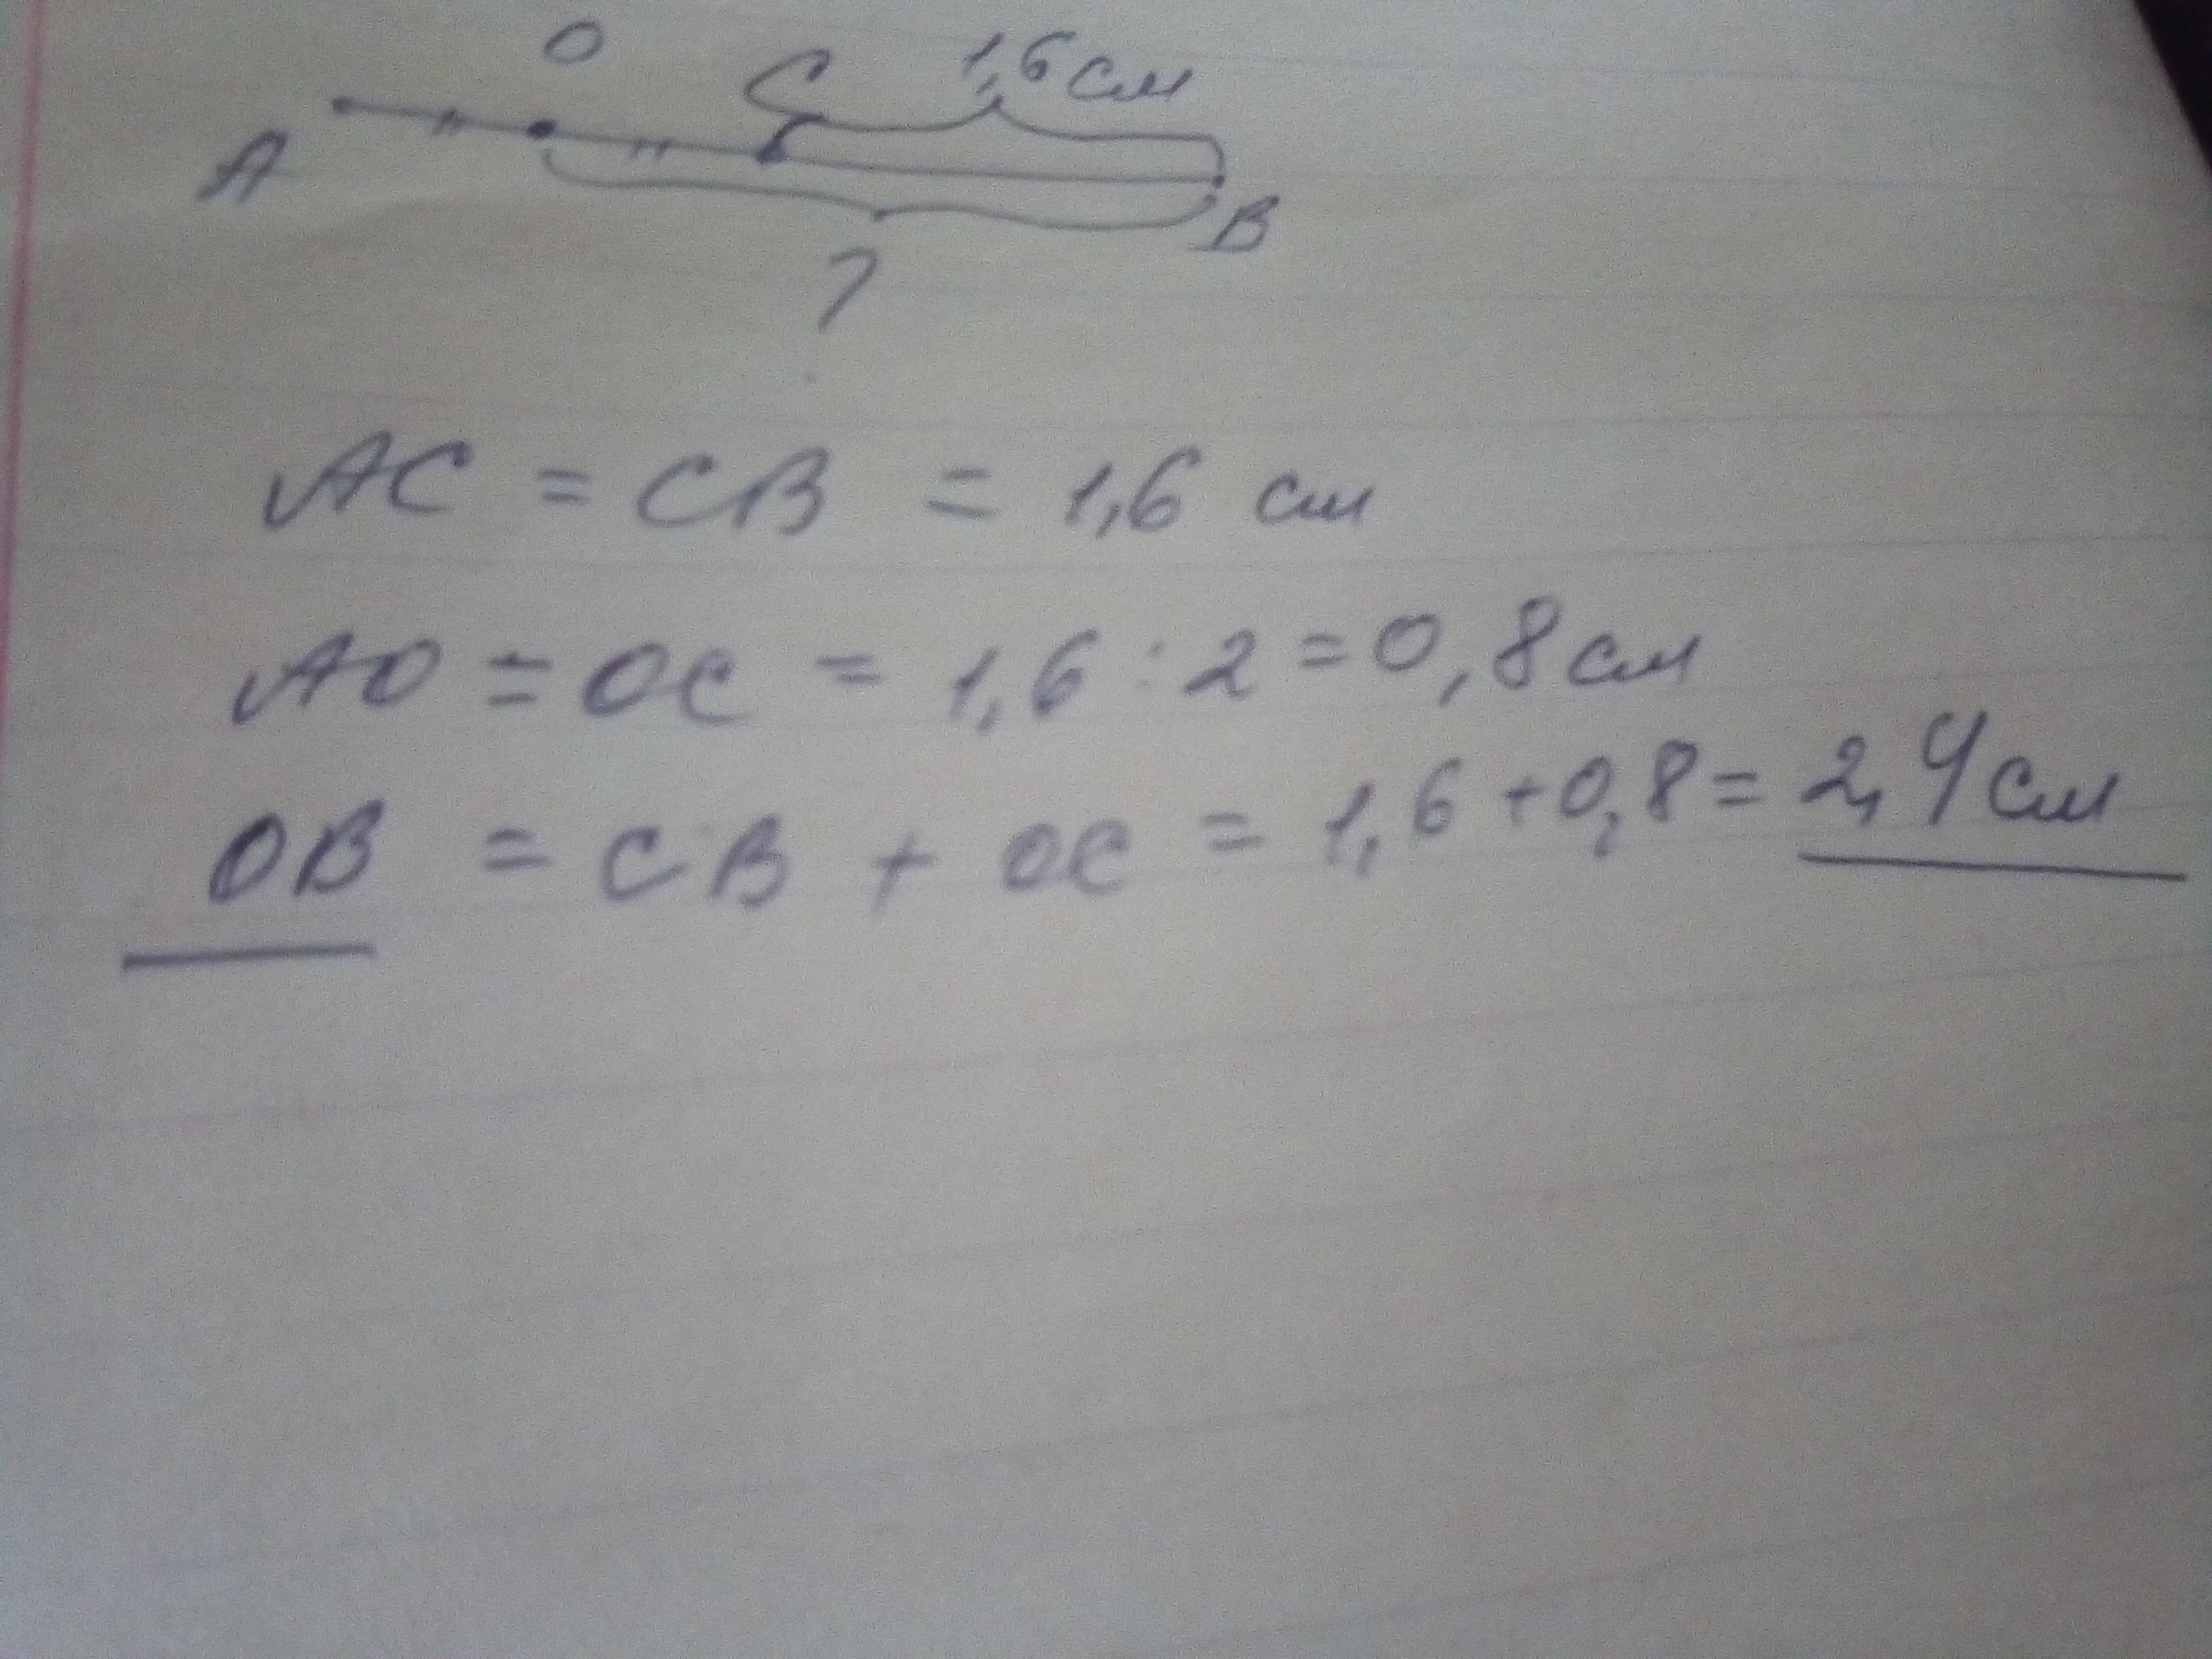 O C 1,6 см
A B
?
AC = CB = 1,6 см
AO = OC = 1,6 : 2 = 0,8 см
OB = CB + OC = 1,6 + 0,8 = 2,4 см